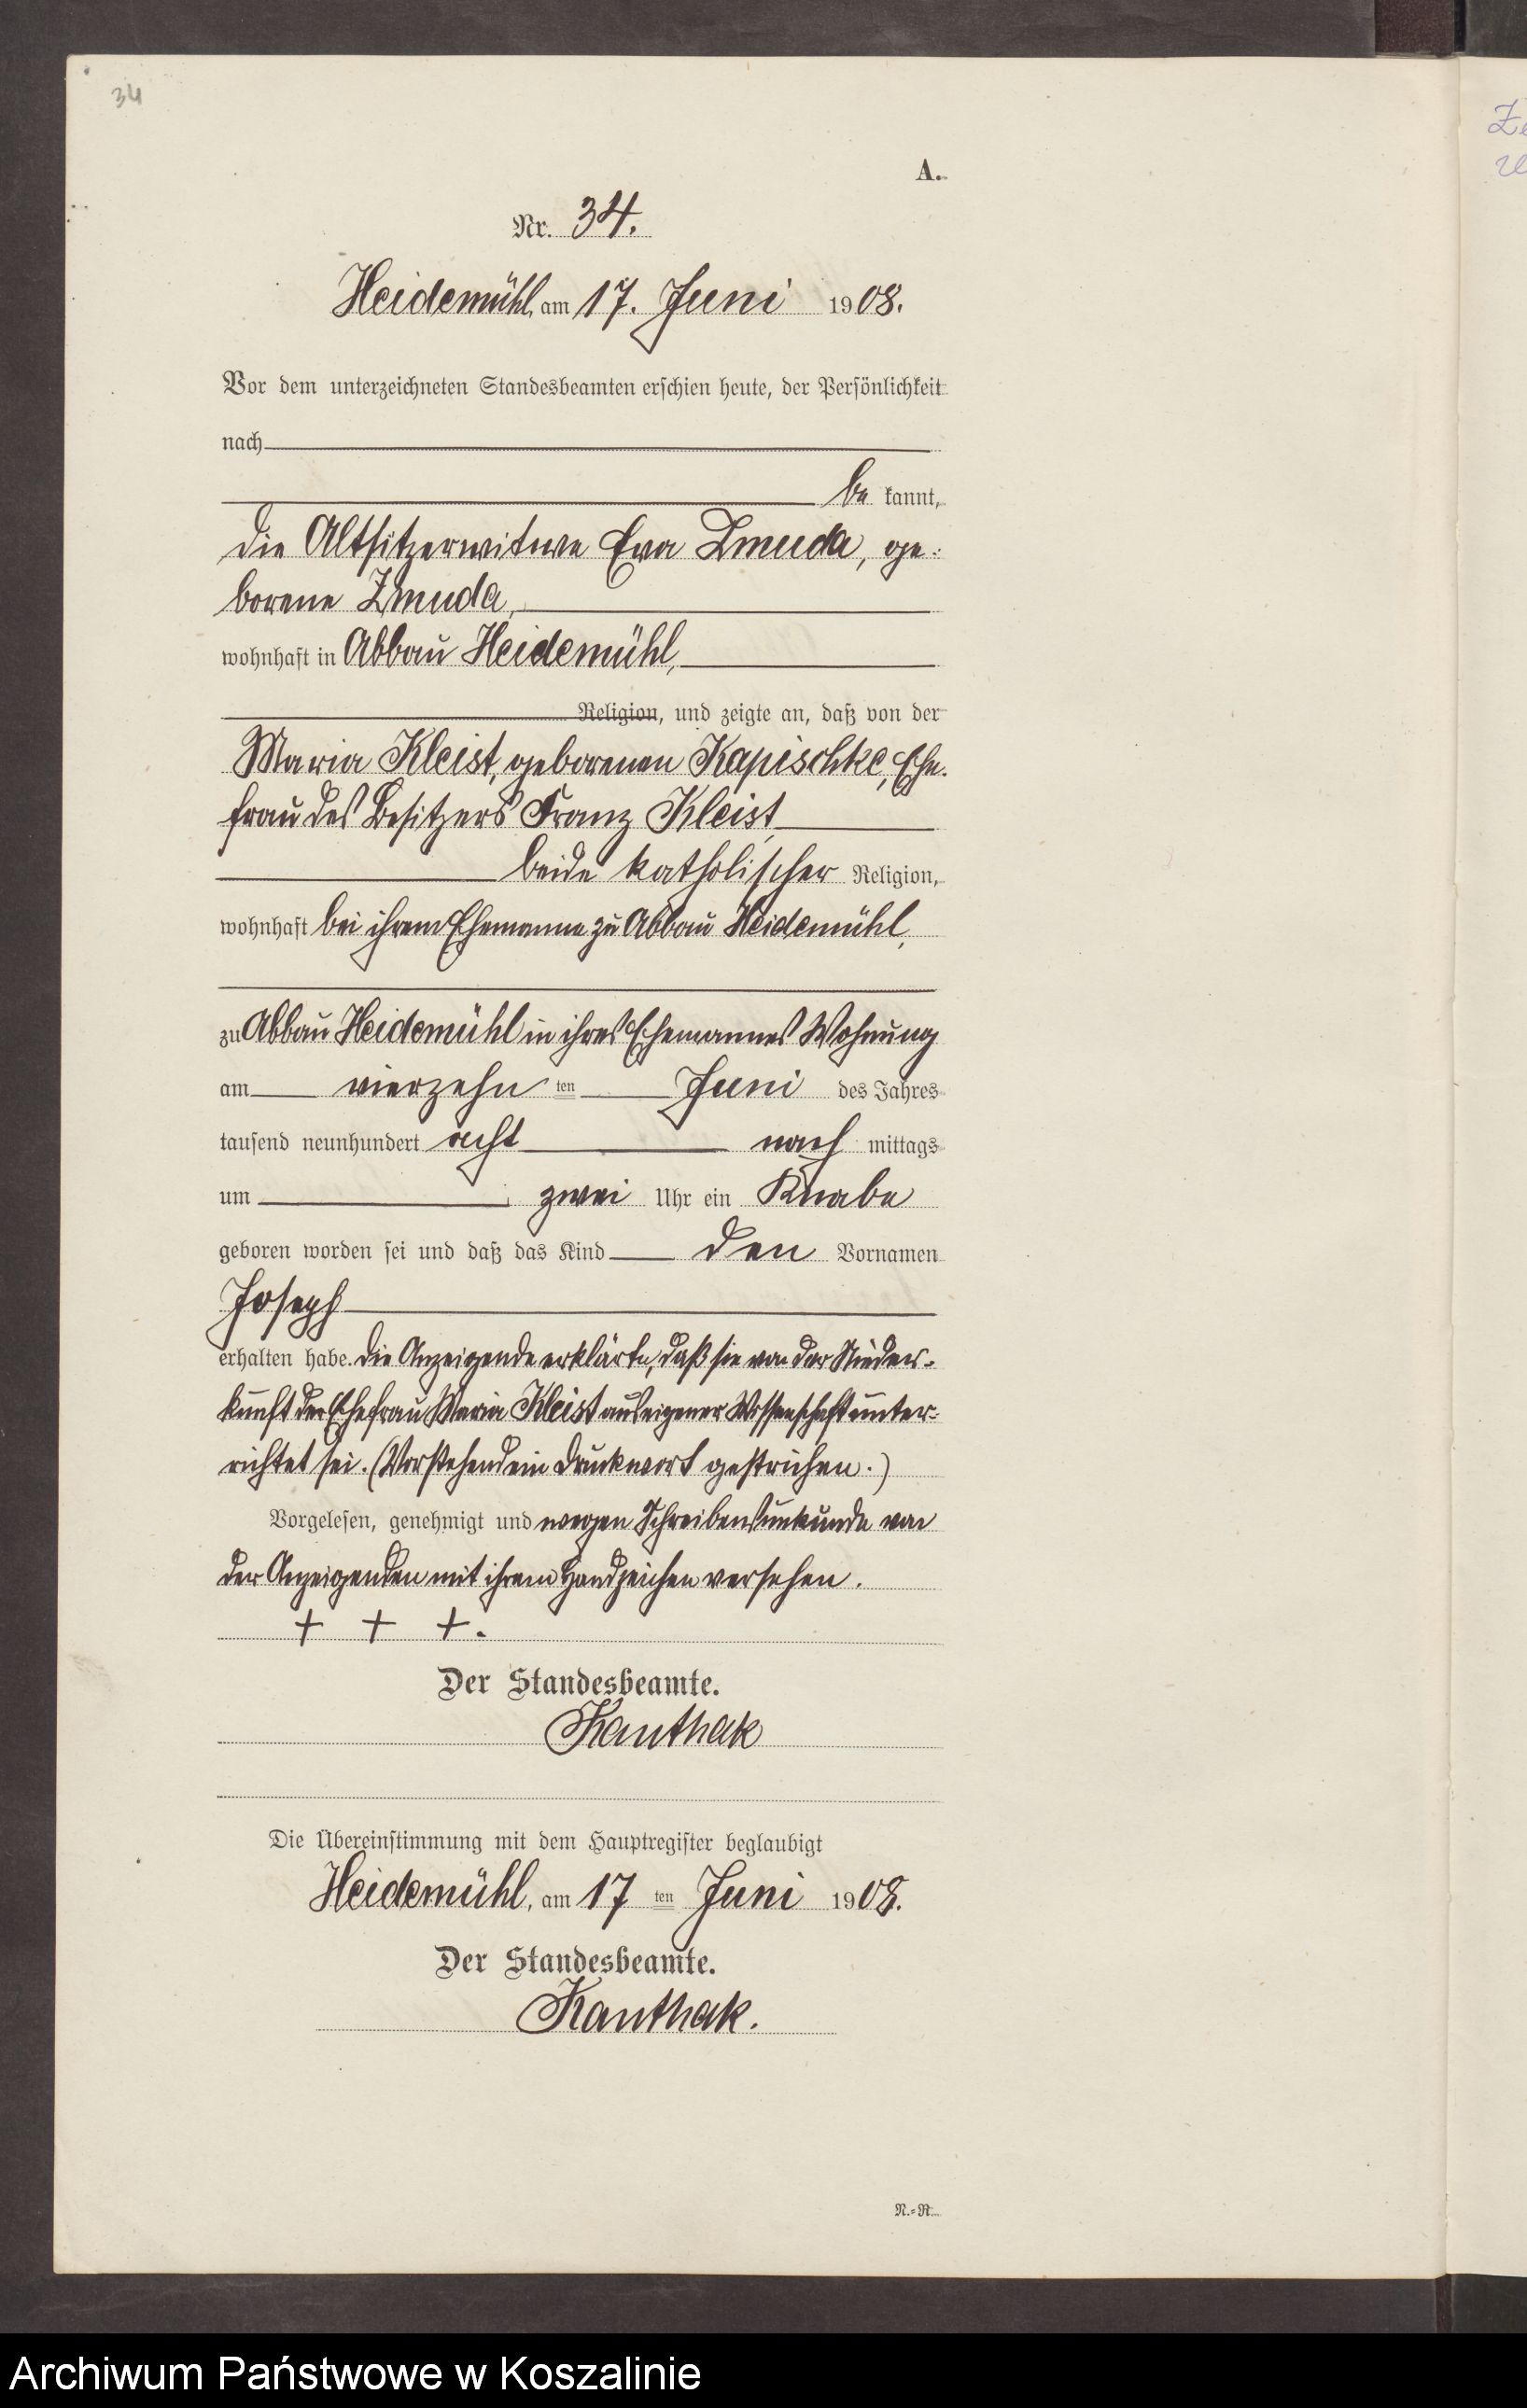 34
A.
Nr. 34.
Heidemühl, am 17. Juni 1908.
Vor dem unterzeichneten Standesbeamten erschien heute, der Persönlichkeit
nach
be kannt,
die Altsitzerwitwe Eva Zmuda, ge-
borene Zmuda,
wohnhaft in Abbau Heidemühl,
Religion, und zeigte an, daß von der
Maria Kleist, geborenen Kapischke, Ehe-
frau des Besitzers Franz Kleist,
beide katholischer Religion,
wohnhaft bei ihrem Ehemanne zu Abbau Heidemühl,
zu Abbau Heidemühl in ihres Ehemannes Wohnung
am vierzehn ten Juni des Jahres
tausend neunhundert acht nach mittags
um zwei Uhr ein Knabe
geboren worden sei und daß das Kind den Vornamen
Joseph
erhalten habe. Die Anzeigende erklärte, daß sie von der Nieder-
kunft der Ehefrau Maria Kleist aus eigener Wissenschaft unter-
richtet sei. (Vorstehend ein Druckwort gestrichen.)
Vorgelesen, genehmigt und wegen Schreibensunkunde von
der Anzeigenden mit ihrem Handzeichen versehen.
+ + +.
Der Standesbeamte.
Kanthak
Die Übereinstimmung mit dem Hauptregister beglaubigt
Heidemühl, am 17 ten Juni 1908.
Der Standesbeamte.
Kanthak.
N.-R.
Archiwum Państwowe w Koszalinie